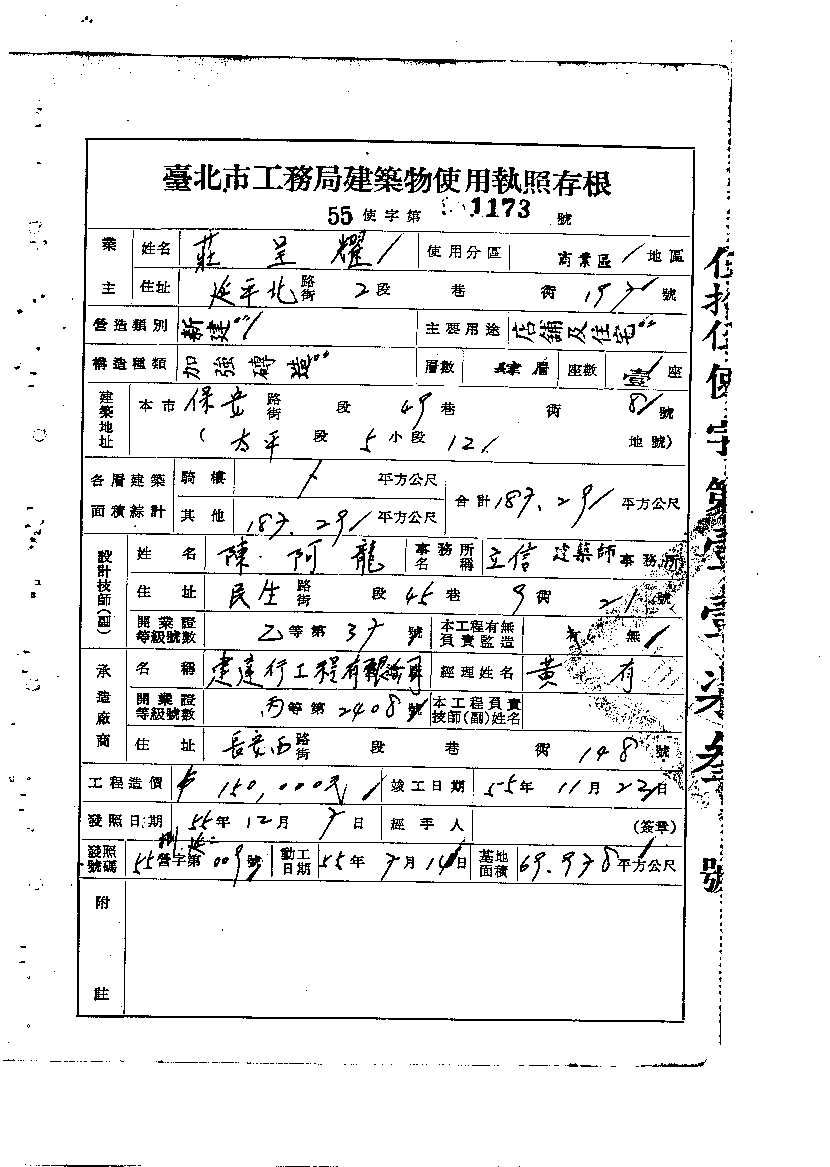 臺北市工務局建築物使用執照存根
55 使字第 1173 號
業主 姓名 莊呈耀 使用分區 商業區 地區
住址 延平北路街 2段 巷 衖 號
營造類別 新建 主要用途 店舖及住宅
構造種類 加強磚造 層數 肆層 座數 座
建築地址 本市 保安路街 段 49巷 衖 8號
(太平段 5小段 12 地號)
各層建築面積綜計 騎樓 平方公尺 合計 平方公尺
其他 平方公尺
設計技師(副) 姓名 陳阿龍 事務所名稱 立信建築師事務所
住址 民生路街 段 45巷 9衖 21號
開業證等級號數 乙等第 號 本工程有無負責監造 有 無
承造廠商 名稱 建達行工程有限公司 經理姓名 黃有
開業證等級號數 丙等第2408號 本工程負責技師(副)姓名
住址 長安西路街 段 巷 衖 148號
工程造價 150,000元 竣工日期 55年11月22日
發照日期 55年12月 日 經手人 (簽章)
發照號碼 55營字第 號 動工日期 55年 月14日 基地面積 平方公尺
附註
伍拾伍使字第壹壹柒叁號